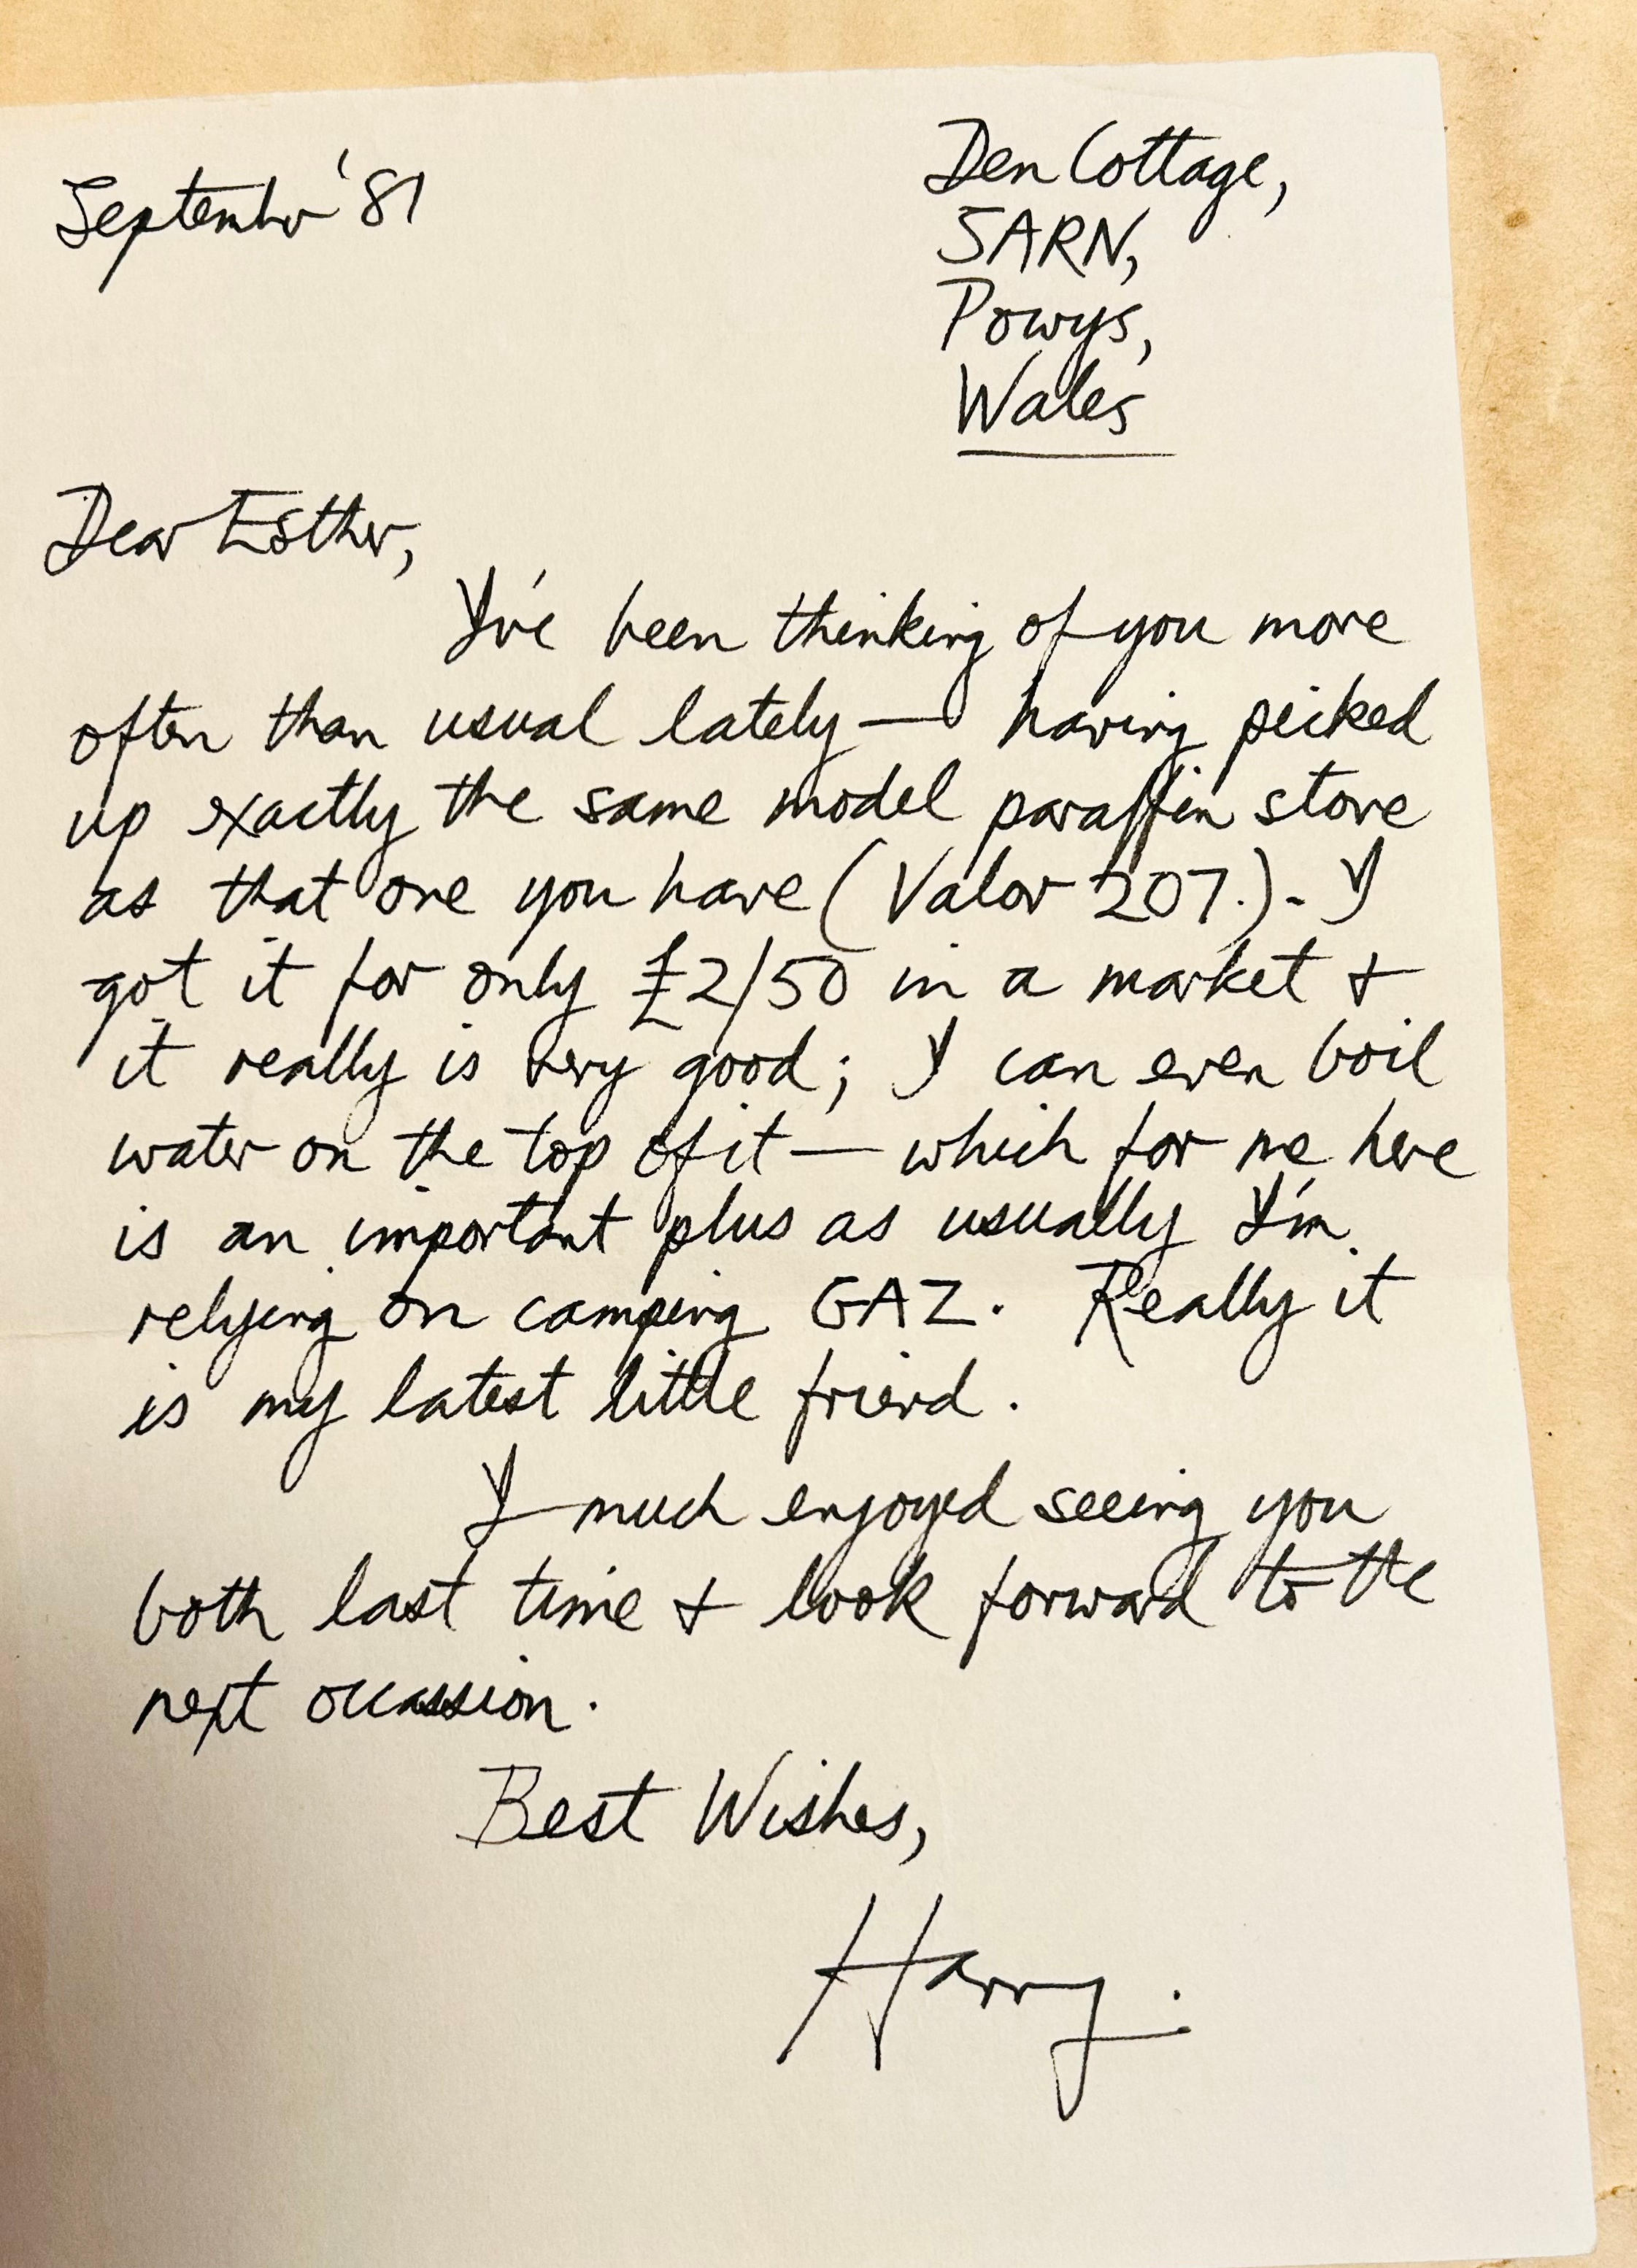 September '81
Den Cottage,
SARN,
Powys,
Wales
Dear Esther,
I've been thinking of you more
often than usual lately — having picked
up exactly the same model paraffin stove
as that one you have (Valor 207.). I
got it for only £2/50 in a market +
it really is very good; I can even boil
water on the top of it — which for me here
is an important plus as usually I'm
relying on camping GAZ. Really it
is my latest little friend.
I much enjoyed seeing you
both last time + look forward to the
next occassion.
Best Wishes,
Harry.